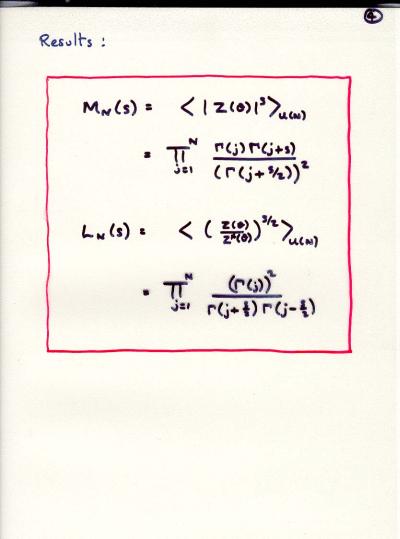 4
Results :
M_N(s) = < |Z(θ)|^s >_U(N)
= ∏_{j=1}^{N} Γ(j)Γ(j+s) / (Γ(j+s/2))^2
L_N(s) = < (Z(θ)/Z*(θ))^{s/2} >_U(N)
= ∏_{j=1}^{N} (Γ(j))^2 / Γ(j+s/2)Γ(j-s/2)